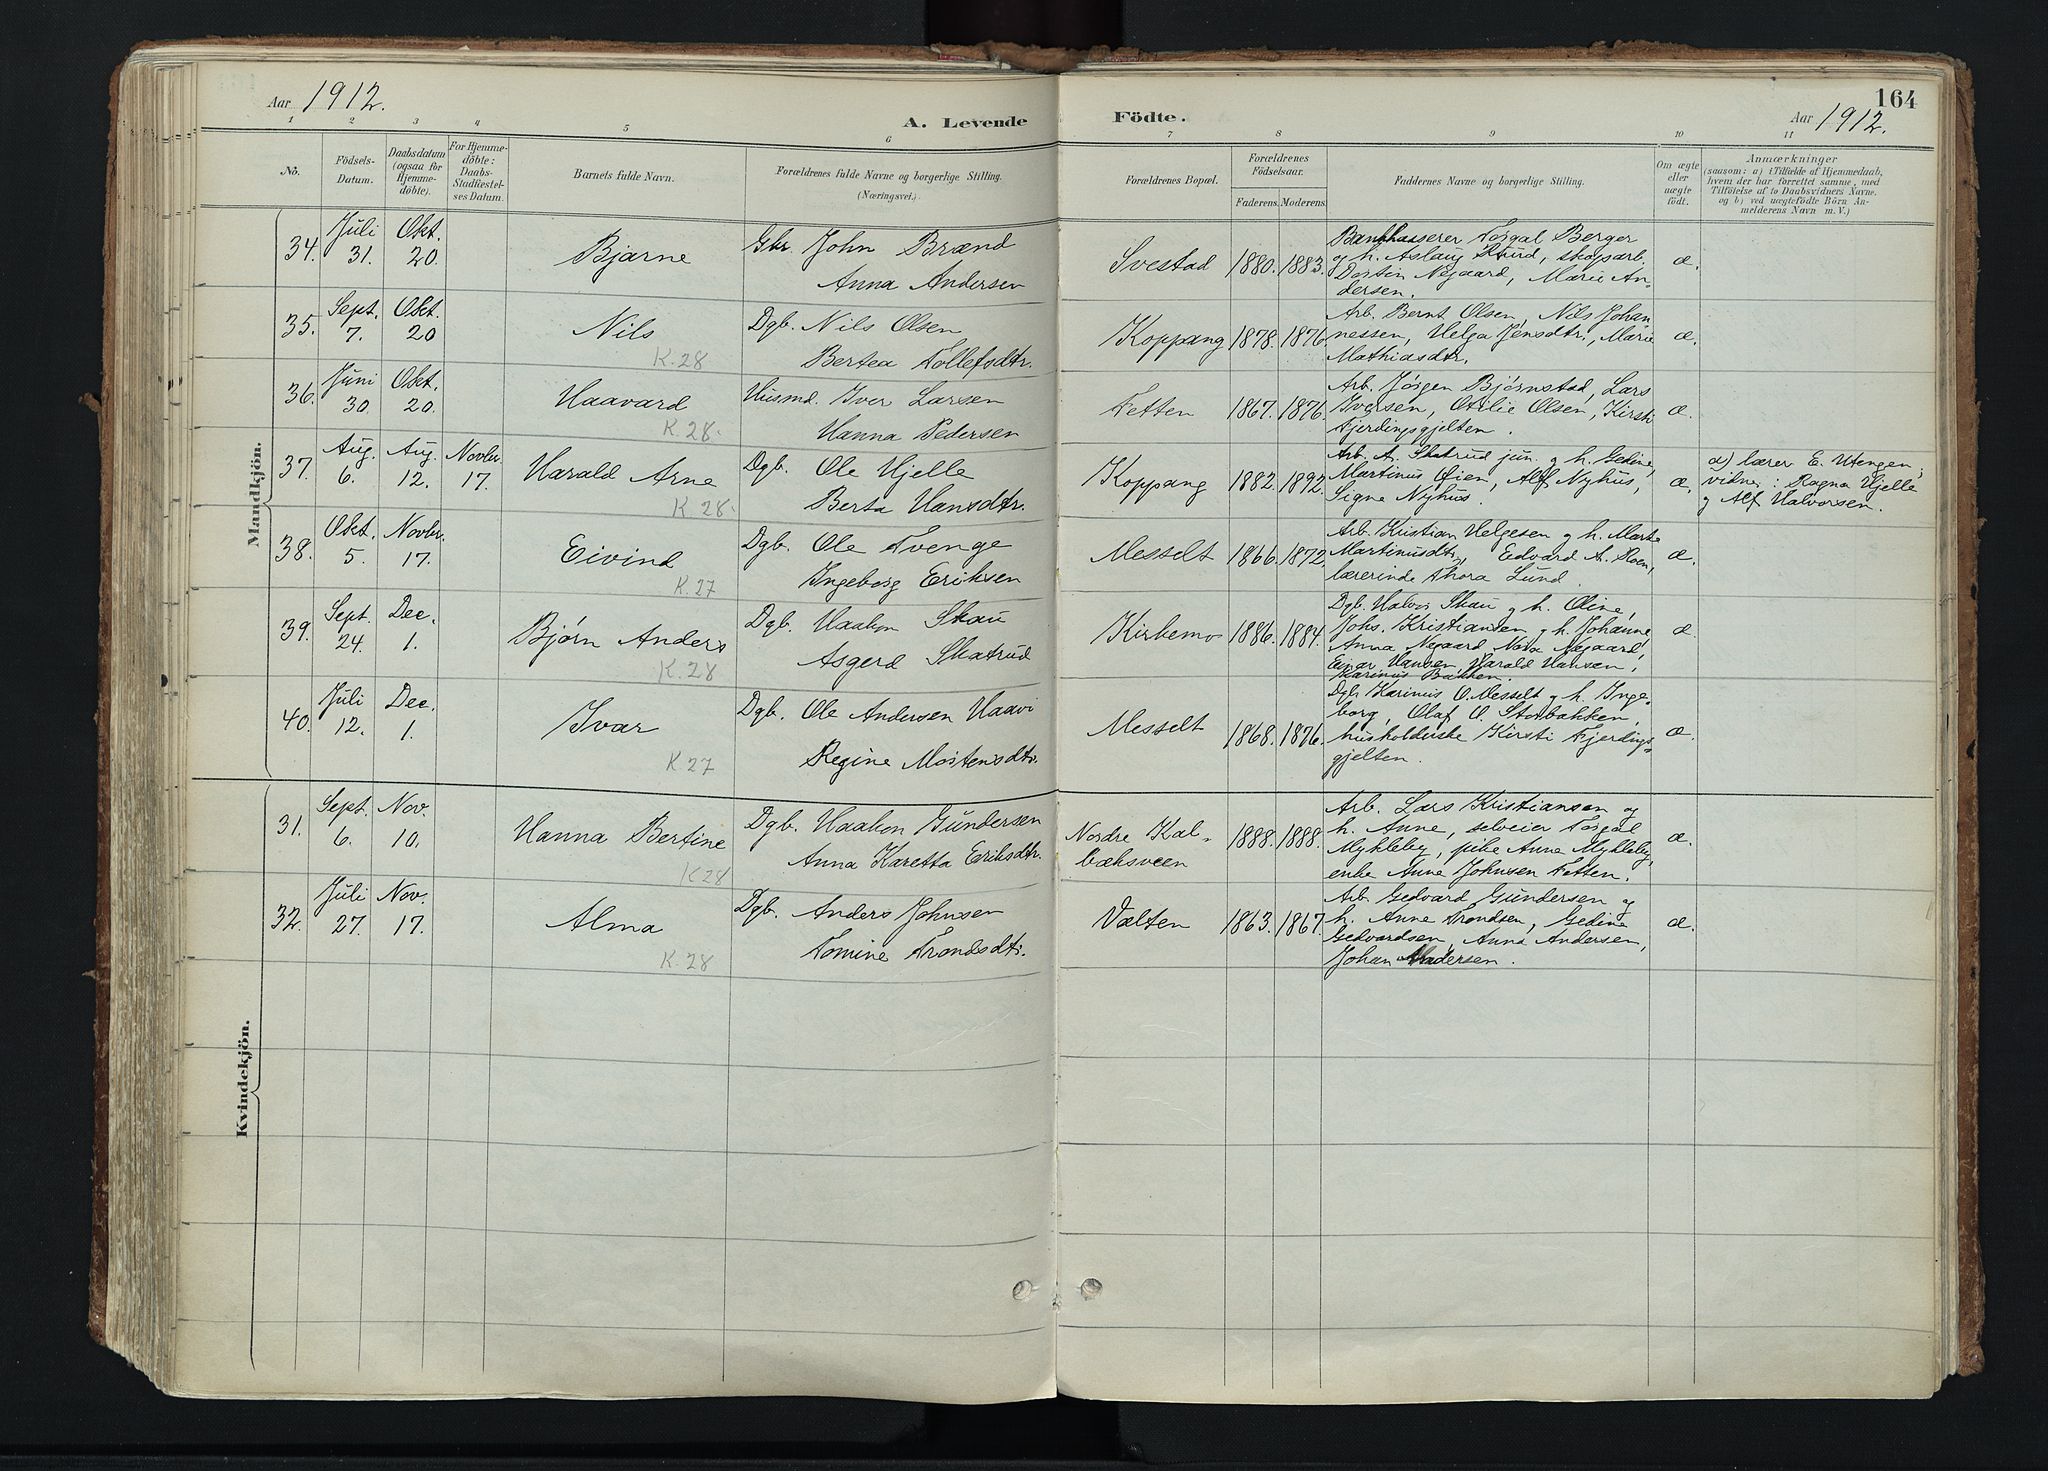 Aar 1912.
A. Levende Födte.
164
Aar 1912.
1 2 3 4 5 6 7 8 9 10 11
No.
Födsels-
Datum.
Daabsdatum
(ogsaa for
Hjemme-
döbte).
For Hjemme-
döbte:
Daabs-
Stadfæstel-
ses Datum.
Barnets fulde Navn.
Forældrenes fulde Navne og borgerlige Stilling.
(Næringsvei.)
Forældrenes Bopæl.
Forældrenes
Födselsaar.
Faderens. Moderens.
Faddernes Navne og borgerlige Stilling.
Om ægte
eller
uægte
födt.
Anmærkninger
(saasom: a) i Tilfælde af Hjemmedaab,
hvem der har forrettet samme, med
Tilföielse af to Daabsvidners Navne,
og b) ved uægtefödte Börn An-
melderens Navn m. V.)
Mandkjön.
34.
Juli
31.
Okt.
20.
Bjarne
Gbr. John Brænd
Anna Andersen
Svestad
1880. 1883.
Bankkasserer Torgal Berger
og h. Aslaug Strud, skogarb.
Dortin Negaard, Marie An-
dersen.
æ.
35.
Sept.
7.
Okt.
20
Nils
K.28
Dgb. Nils Olsen
Bertea Tollefsdtr.
Koppang
1878. 1876
Arb. Bernt Olsen, Nils Johan-
nessen, Helga Jensdtr., Marie
Mathiasdtr.
æ.
36.
Juni
30.
Okt.
20.
Haavard
K.28.
Husmd. Iver Larsen
Hanna Pedersen
Tetten
1867. 1876.
Arb. Jørgen Bjørnstad, Lars
Iversen, Otilie Olsen, Kirsti
Fjerdingsgjelten.
æ.
37.
Aug.
6.
Aug.
12.
Novbr.
17.
Harald Arne
K 28.
Dgb. Ole Hjelle
Berta Hansdtr.
Koppang
1882. 1892.
Arb. A. Skatrud jun. og h. Gedine,
Martinus Øien, Alf Nyhus,
Signe Nyhus.
æ.
a) lærer E. Utengen;
vidner: Ragna Hjelle
og Alf Halvorsen.
38.
Okt.
5.
Novbr.
17.
Eivind
K.27
Dgb. Ole Tvenge
Ingeborg Eriksen
Messelt
1866. 1872.
Arb. Kristian Helgesen og h. Marte
Martinusdtr, Edvard A. Roen,
lærerinde Thora Lund.
æ.
39.
Sept.
24.
Dec.
1.
Bjørn Anders
K.28
Dgb. Haakon Skau
Asgerd Skatrud
Kirkemo
1886. 1884.
Dgb. Halvor Skau og h. Oline,
Johs. Kristiansen og h. Johanne,
Anna Negaard, Negaard,
Einar Hansen, Harald Hansen,
Karinus Bakken.
æ.
40.
Juli
12.
Dec.
1.
Ivar
K.27
Dgb. Ole Andersen Haavi
Regine Mortensdtr.
Messelt
1868. 1876.
Dgb. Karinus O. Messelt og h. Inge-
borg, Olaf O. Storbakken,
husholderske Kirsti Fjerdings-
gjelten.
æ.
Kvindekjön.
31.
Sept.
6.
Nov.
10.
Hanna Bertine
K28
Dgb. Haakon Gundersen
Anna Karetta Eriksdtr.
Nordre Kal-
bæksveen
1888. 1888.
Arb. Lars Kristiansen og
h. Anne, selveier Torgal
Mykleby, pike Anne Mykleby,
enke Anne Johnsen Tetten.
æ.
32.
Juli
27.
Nov.
17.
Alma
K.28
Dgb. Anders Johnsen
Tomine Trondsdtr.
Valten
1863. 1867.
Arb. Gedvard Gundersen og
h. Anne Trondsen, Gedine
Gedvardsen, Anna Andersen,
Johan Andersen.
æ.